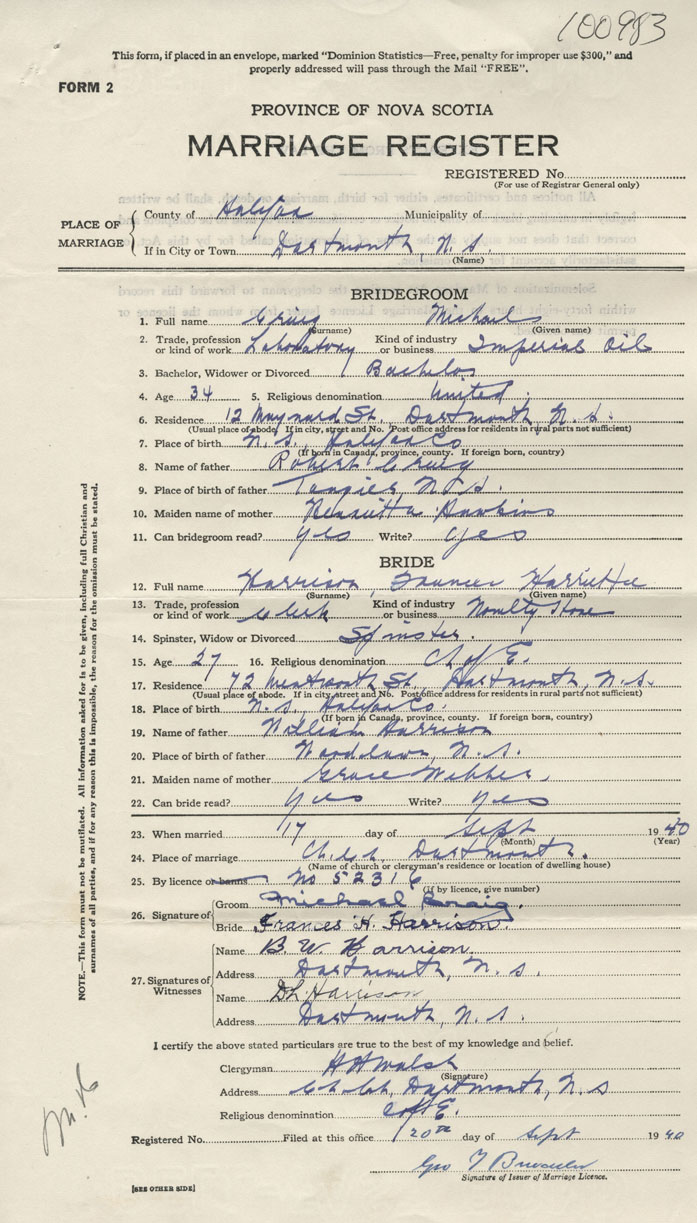 100983
This form, if placed in an envelope, marked "Dominion Statistics—Free, penalty for improper use $300," and
properly addressed will pass through the Mail "FREE".
FORM 2
PROVINCE OF NOVA SCOTIA
MARRIAGE REGISTER
REGISTERED No.
(For use of Registrar General only)
PLACE OF MARRIAGE
County of Halifax Municipality of
If in City or Town Dartmouth, N.S.
(Name)
BRIDEGROOM
1. Full name Craig Michael
(Surname) (Given name)
2. Trade, profession or kind of work Laboratory Kind of industry or business Imperial Oil
3. Bachelor, Widower or Divorced Bachelor
4. Age 34 5. Religious denomination United
6. Residence 12 Maynard St. Dartmouth, N.S.
(Usual place of abode. If in city, street and No. Post office address for residents in rural parts not sufficient)
7. Place of birth N.S. Halifax Co
(If born in Canada, province, county. If foreign born, country)
8. Name of father Robert Craig
9. Place of birth of father Tangier N.S.
10. Maiden name of mother Henrietta Hawkins
11. Can bridegroom read? yes Write? yes
BRIDE
12. Full name Harrison, Frances Harriette
(Surname) (Given name)
13. Trade, profession or kind of work Clerk Kind of industry or business Novelty Store
14. Spinster, Widow or Divorced Spinster.
15. Age 27 16. Religious denomination Ch of E.
17. Residence 72 Wentworth St, Dartmouth, N.S.
(Usual place of abode. If in city, street and No. Post office address for residents in rural parts not sufficient)
18. Place of birth N.S. Halifax Co.
(If born in Canada, province, county. If foreign born, country)
19. Name of father William Harrison
20. Place of birth of father Woodlawn, N.S.
21. Maiden name of mother Grace Webber
22. Can bride read? yes Write? yes
23. When married 17 day of Sept 1940
(Month) (Year)
24. Place of marriage Ch. Ch. Dartmouth.
(Name of church or clergyman's residence or location of dwelling house)
25. By licence or banns No 52316
(If by licence, give number)
26. Signature of
Groom Michael Craig.
Bride Frances H. Harrison.
27. Signatures of Witnesses
Name B. W. Harrison.
Address Dartmouth, N.S.
Name D L Harrison
Address Dartmouth, N.S.
I certify the above stated particulars are true to the best of my knowledge and belief.
Clergyman H H Walsh
(Signature)
Address Ch. Ch., Dartmouth, N.S
Religious denomination C of E.
Registered No. Filed at this office 20th day of Sept 1940
Geo
Signature of Issuer of Marriage Licence.
[SEE OTHER SIDE]
NOTE.—This form must not be mutilated. All information asked for is to be given, including full Christian and
surnames of all parties, and if for any reason this is impossible, the reason for the omission must be stated.